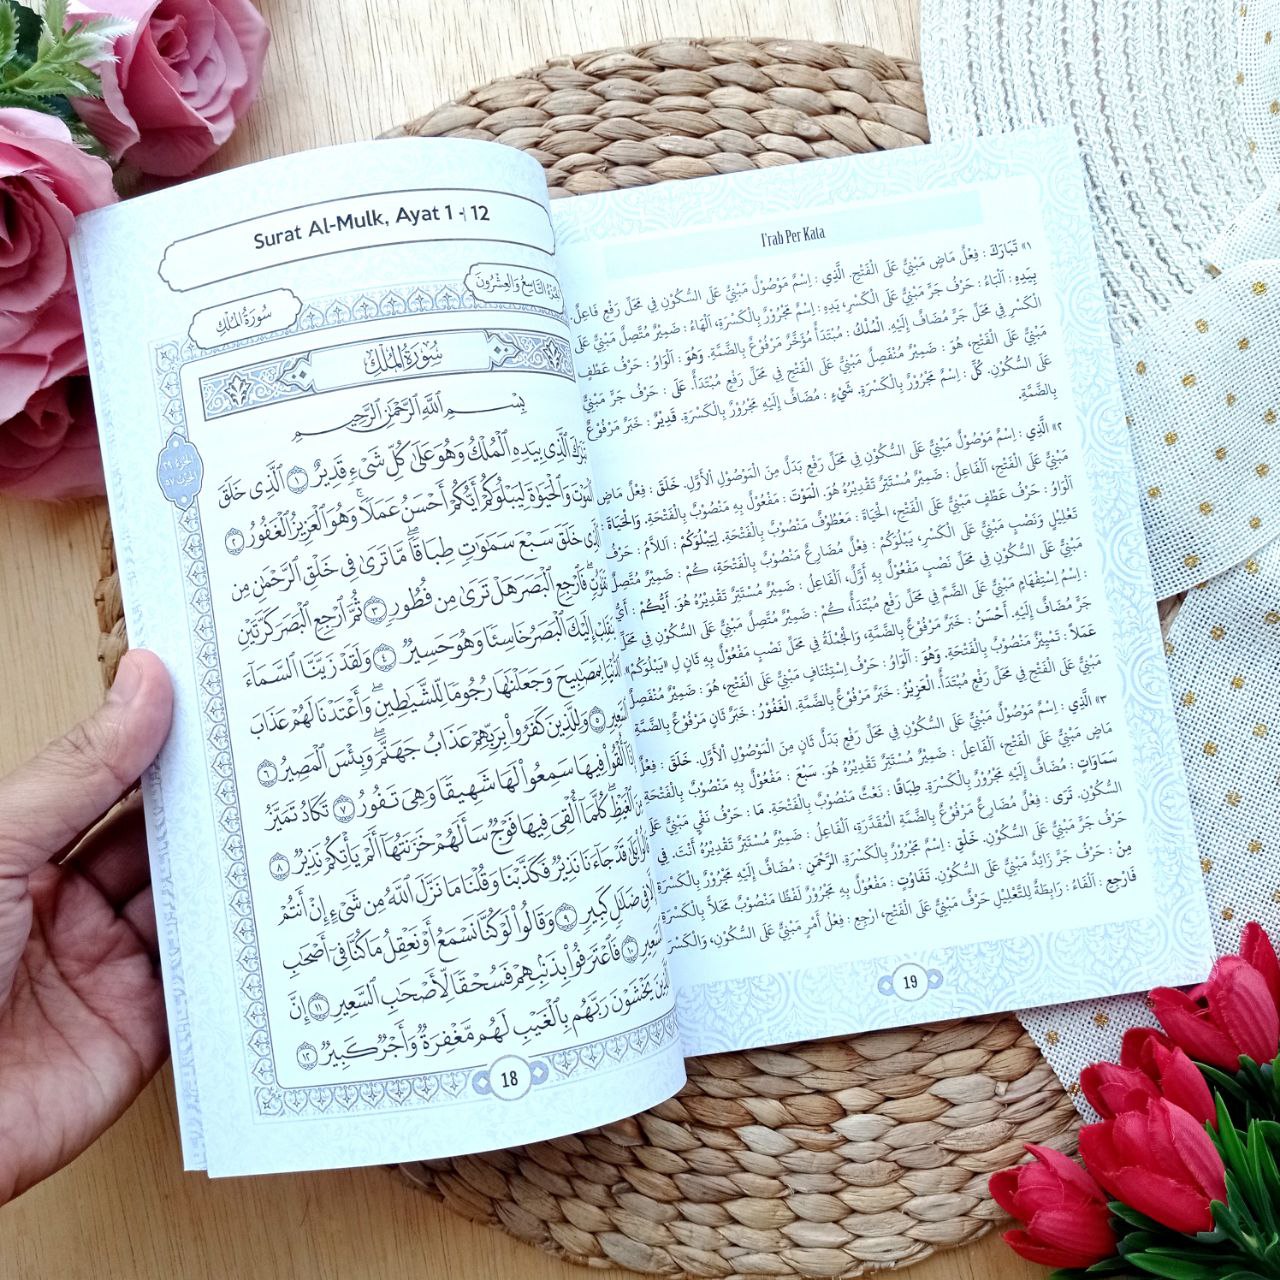 Surat Al-Mulk, Ayat 1 - 12
سُورَةُ المُلْكِ
الجُزْءُ التَّاسِعُ وَالعِشْرُونَ
سُورَةُ المُلْكِ
الجزء ٢٩
الحزب ٥٧
بِسْمِ ٱللَّهِ ٱلرَّحْمَٰنِ ٱلرَّحِيمِ
تَبَٰرَكَ ٱلَّذِى بِيَدِهِ ٱلْمُلْكُ وَهُوَ عَلَىٰ كُلِّ شَىْءٍ قَدِيرٌ ١ ٱلَّذِى خَلَقَ
ٱلْمَوْتَ وَٱلْحَيَوٰةَ لِيَبْلُوَكُمْ أَيُّكُمْ أَحْسَنُ عَمَلًا ۚ وَهُوَ ٱلْعَزِيزُ ٱلْغَفُورُ ٢
ٱلَّذِى خَلَقَ سَبْعَ سَمَٰوَٰتٍ طِبَاقًا ۖ مَّا تَرَىٰ فِى خَلْقِ ٱلرَّحْمَٰنِ مِن
تَفَٰوُتٍ ۖ فَٱرْجِعِ ٱلْبَصَرَ هَلْ تَرَىٰ مِن فُطُورٍ ٣ ثُمَّ ٱرْجِعِ ٱلْبَصَرَ كَرَّتَيْنِ
يَنقَلِبْ إِلَيْكَ ٱلْبَصَرُ خَاسِئًا وَهُوَ حَسِيرٌ ٤ وَلَقَدْ زَيَّنَّا ٱلسَّمَآءَ
ٱلدُّنْيَا بِمَصَٰبِيحَ وَجَعَلْنَٰهَا رُجُومًا لِّلشَّيَٰطِينِ ۖ وَأَعْتَدْنَا لَهُمْ عَذَابَ
ٱلسَّعِيرِ ٥ وَلِلَّذِينَ كَفَرُوا۟ بِرَبِّهِمْ عَذَابُ جَهَنَّمَ ۖ وَبِئْسَ ٱلْمَصِيرُ ٦
إِذَآ أُلْقُوا۟ فِيهَا سَمِعُوا۟ لَهَا شَهِيقًا وَهِىَ تَفُورُ ٧ تَكَادُ تَمَيَّزُ
مِنَ ٱلْغَيْظِ ۖ كُلَّمَآ أُلْقِىَ فِيهَا فَوْجٌ سَأَلَهُمْ خَزَنَتُهَآ أَلَمْ يَأْتِكُمْ نَذِيرٌ ٨
قَالُوا۟ بَلَىٰ قَدْ جَآءَنَا نَذِيرٌ فَكَذَّبْنَا وَقُلْنَا مَا نَزَّلَ ٱللَّهُ مِن شَىْءٍ إِنْ أَنتُمْ
إِلَّا فِى ضَلَٰلٍ كَبِيرٍ ٩ وَقَالُوا۟ لَوْ كُنَّا نَسْمَعُ أَوْ نَعْقِلُ مَا كُنَّا فِىٓ أَصْحَٰبِ
ٱلسَّعِيرِ ١٠ فَٱعْتَرَفُوا۟ بِذَنۢبِهِمْ فَسُحْقًا لِّأَصْحَٰبِ ٱلسَّعِيرِ ١١ إِنَّ
ٱلَّذِينَ يَخْشَوْنَ رَبَّهُم بِٱلْغَيْبِ لَهُم مَّغْفِرَةٌ وَأَجْرٌ كَبِيرٌ ١٢
18
I'rab Per Kata
١» تَبَارَكَ : فِعْلٌ مَاضٍ مَبْنِيٌّ عَلَى الْفَتْحِ. الَّذِي : اِسْمٌ مَوْصُوْلٌ مَبْنِيٌّ عَلَى السُّكُوْنِ فِي مَحَلِّ رَفْعٍ فَاعِلٌ.
بِيَدِهِ : اَلْبَاءُ : حَرْفُ جَرٍّ مَبْنِيٌّ عَلَى الْكَسْرِ، يَدِهِ : اِسْمٌ مَجْرُوْرٌ بِالْكَسْرَةِ، اَلْهَاءُ : ضَمِيْرٌ مُتَّصِلٌ مَبْنِيٌّ عَلَى
الْكَسْرِ فِي مَحَلِّ جَرٍّ مُضَافٌ إِلَيْهِ. الْمُلْكُ : مُبْتَدَأٌ مُؤَخَّرٌ مَرْفُوْعٌ بِالضَّمَّةِ. وَهُوَ : اَلْوَاوُ : حَرْفُ عَطْفٍ
مَبْنِيٌّ عَلَى الْفَتْحِ، هُوَ : ضَمِيْرٌ مُنْفَصِلٌ مَبْنِيٌّ عَلَى الْفَتْحِ فِي مَحَلِّ رَفْعٍ مُبْتَدَأٌ. عَلَى : حَرْفُ جَرٍّ مَبْنِيٌّ
عَلَى السُّكُوْنِ. كُلِّ : اِسْمٌ مَجْرُوْرٌ بِالْكَسْرَةِ. شَيْءٍ : مُضَافٌ إِلَيْهِ مَجْرُوْرٌ بِالْكَسْرَةِ. قَدِيْرٌ : خَبَرٌ مَرْفُوْعٌ
بِالضَّمَّةِ.
٢» الَّذِي : اِسْمٌ مَوْصُوْلٌ مَبْنِيٌّ عَلَى السُّكُوْنِ فِي مَحَلِّ رَفْعٍ بَدَلٌ مِنَ الْمَوْصُوْلِ الْأَوَّلِ. خَلَقَ : فِعْلٌ مَاضٍ
مَبْنِيٌّ عَلَى الْفَتْحِ، اَلْفَاعِلُ : ضَمِيْرٌ مُسْتَتِرٌ تَقْدِيْرُهُ هُوَ. الْمَوْتَ : مَفْعُوْلٌ بِهِ مَنْصُوْبٌ بِالْفَتْحَةِ. وَالْحَيَاةَ :
اَلْوَاوُ : حَرْفُ عَطْفٍ مَبْنِيٌّ عَلَى الْفَتْحِ، الْحَيَاةَ : مَعْطُوْفٌ مَنْصُوْبٌ بِالْفَتْحَةِ. لِيَبْلُوَكُمْ : اَللَّامُ : حَرْفُ
تَعْلِيْلٍ وَنَصْبٍ مَبْنِيٌّ عَلَى الْكَسْرِ، يَبْلُوَكُمْ : فِعْلٌ مُضَارِعٌ مَنْصُوْبٌ بِالْفَتْحَةِ، كُمْ : ضَمِيْرٌ مُتَّصِلٌ
مَبْنِيٌّ عَلَى السُّكُوْنِ فِي مَحَلِّ نَصْبٍ مَفْعُوْلٌ بِهِ أَوَّلُ، اَلْفَاعِلُ : ضَمِيْرٌ مُسْتَتِرٌ تَقْدِيْرُهُ هُوَ. أَيُّكُمْ : أَيُّ
: اِسْمُ اِسْتِفْهَامٍ مَبْنِيٌّ عَلَى الضَّمِّ فِي مَحَلِّ رَفْعٍ مُبْتَدَأٌ، كُمْ : ضَمِيْرٌ مُتَّصِلٌ مَبْنِيٌّ عَلَى السُّكُوْنِ فِي مَحَلِّ
جَرٍّ مُضَافٌ إِلَيْهِ. أَحْسَنُ : خَبَرٌ مَرْفُوْعٌ بِالضَّمَّةِ، وَالْجُمْلَةُ فِي مَحَلِّ نَصْبٍ مَفْعُوْلٌ بِهِ ثَانٍ لِ «يَبْلُوَكُمْ».
عَمَلًا : تَمْيِيْزٌ مَنْصُوْبٌ بِالْفَتْحَةِ. وَهُوَ : اَلْوَاوُ : حَرْفُ اِسْتِئْنَافٍ مَبْنِيٌّ عَلَى الْفَتْحِ، هُوَ : ضَمِيْرٌ مُنْفَصِلٌ
مَبْنِيٌّ عَلَى الْفَتْحِ فِي مَحَلِّ رَفْعٍ مُبْتَدَأٌ. الْعَزِيْزُ : خَبَرٌ مَرْفُوْعٌ بِالضَّمَّةِ. الْغَفُوْرُ : خَبَرٌ ثَانٍ مَرْفُوْعٌ بِالضَّمَّةِ.
٣» الَّذِي : اِسْمٌ مَوْصُوْلٌ مَبْنِيٌّ عَلَى السُّكُوْنِ فِي مَحَلِّ رَفْعٍ بَدَلٌ ثَانٍ مِنَ الْمَوْصُوْلِ الْأَوَّلِ. خَلَقَ : فِعْلٌ
مَاضٍ مَبْنِيٌّ عَلَى الْفَتْحِ، اَلْفَاعِلُ : ضَمِيْرٌ مُسْتَتِرٌ تَقْدِيْرُهُ هُوَ. سَبْعَ : مَفْعُوْلٌ بِهِ مَنْصُوْبٌ بِالْفَتْحَةِ.
سَمَاوَاتٍ : مُضَافٌ إِلَيْهِ مَجْرُوْرٌ بِالْكَسْرَةِ. طِبَاقًا : نَعْتٌ مَنْصُوْبٌ بِالْفَتْحَةِ. مَا : حَرْفُ نَفْيٍ مَبْنِيٌّ عَلَى
السُّكُوْنِ. تَرَى : فِعْلٌ مُضَارِعٌ مَرْفُوْعٌ بِالضَّمَّةِ الْمُقَدَّرَةِ، اَلْفَاعِلُ : ضَمِيْرٌ مُسْتَتِرٌ تَقْدِيْرُهُ أَنْتَ. فِي :
حَرْفُ جَرٍّ مَبْنِيٌّ عَلَى السُّكُوْنِ. خَلْقِ : اِسْمٌ مَجْرُوْرٌ بِالْكَسْرَةِ. الرَّحْمٰنِ : مُضَافٌ إِلَيْهِ مَجْرُوْرٌ بِالْكَسْرَةِ.
مِنْ : حَرْفُ جَرٍّ زَائِدٌ مَبْنِيٌّ عَلَى السُّكُوْنِ. تَفَاوُتٍ : مَفْعُوْلٌ بِهِ مَجْرُوْرٌ لَفْظًا مَنْصُوْبٌ مَحَلًّا بِالْكَسْرَةِ.
فَارْجِعِ : اَلْفَاءُ : رَابِطَةٌ لِلتَّعْلِيْلِ حَرْفٌ مَبْنِيٌّ عَلَى الْفَتْحِ، ارْجِعِ : فِعْلُ أَمْرٍ مَبْنِيٌّ عَلَى السُّكُوْنِ، وَالْكَسْرَ
19